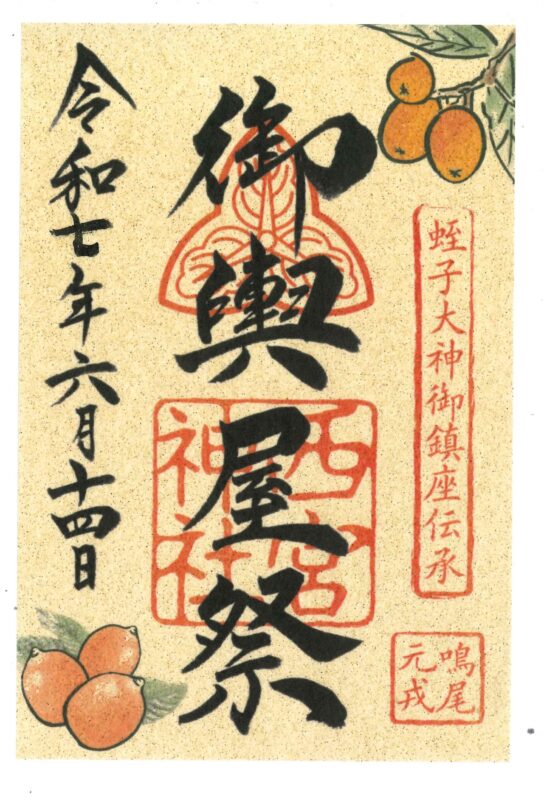 蛭子大神御鎮座伝承
鳴尾
元戎
御輿屋祭
西宮
神社
令和七年六月十四日